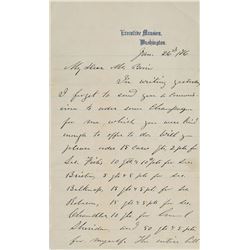 Executive Mansion,
Washington.
June 26th 186
My Dear Mr.
In writing yesterday
I forgot to send you a
to order some Champagne
for me which you were kind
enough to offer to do. Will you
please order 15 cases qts 2 pts for
Sec. Fish, 10 qts & 10 pts for Sec.
Bristow, 5 qts & 5 pts for Sec.
Belknap, 15 qts & 5 pts for Sec.
Robeson, 15 qts & 5 pts for Sec.
Chandler 10 qts for Genl
Sheridan and 50 qts & 5 pts
for myself. The entire bill